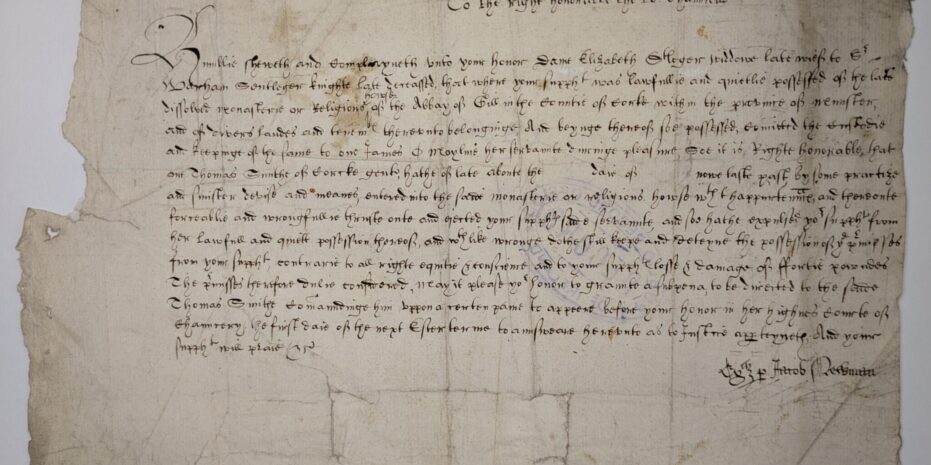 To the right honorable the Lo: Chauncelor
Humblie sheweth and Complayneth unto your honor Dame Elizabeth Sileger widdowe late wief to Sr
Warham Sentleger knighte late deceassed, that where your supplt was lawfullie and quietlie possessed of the late
dissolved monasterie or Religious howse of the Abbay of Gill in the Countie of Corke within the province of Mounster,
and of divers landes and tenemts thereunto belonginge And beynge thereof soe possessed, comitted the Custodie
and keepinge of the same to one James O Moylnus her servaunte duringe pleasure, Soe it is, Righte honorable, that
one Thomas Smithe of Corcke gent, hathe of late aboute the daie of nowe laste past by some practize
and sinister devise and meanes, entered into the saide monasterie or religious howse wth thappurtenances, and thereoute
forceablie and wrongfullie thruste oute and ejected your supplts saide servaunte, and soe hathe expulsed yor supplt from
her lawfull and quiett possession thereof, and wth like wronge dothe still keepe and deteyne the possession of ye premisses
from your supplt contrarie to all right equitie & conscience, and to your supplts losse & damage of ffortie poundes
The premisses therefore dulie considered, May it please yor honor to graunte a subpena to be directed to the saide
Thomas Smithe Comaundinge him uppon a certen paine to appeere before your honor in her highnes Courte of
Chauncery, the first daie of the next Ester terme to answeare hereunto as to Justice apperteyneth, And your
supplt will praie &c
Jacob Newman